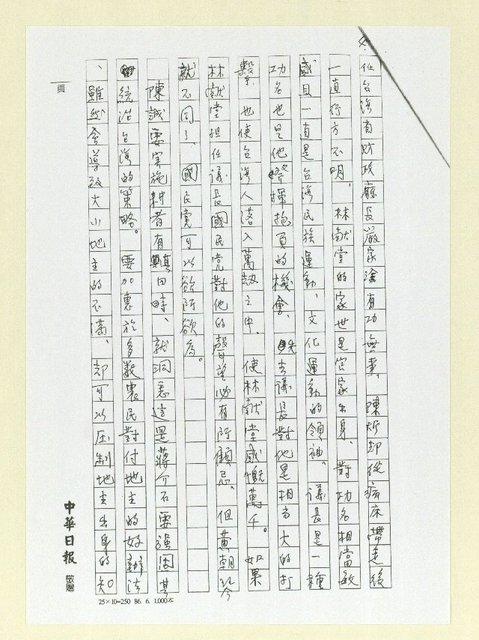 任台灣省財政廳長嚴家淦有功無賞，陳炘卻從病床帶走後
一直行方不明。林獻堂的家世是官家出身，對功名相當敏
感且一直是台灣民族運動、文化運動的領袖。議長是一種
功名也是他發揮抱負的機會。失去議長對他是相當大的打
擊，也使台灣人落入萬劫之中，使林獻堂感慨萬千。如果
林獻堂担任議長國民黨對他的聲望必有所顧忌。但黃朝琴
就不同了，國民黨可以欲所欲為。
陳誠要實施耕者有其田時，就洞悉這是蔣介石要強固其
統治台灣的策略。要加惠於多數農民對付地主的好辦法
，雖然會導致大小地主的不滿，卻可以压制地主出身的知
中華日報 敬贈
25×10=250 86. 6. 1,000本